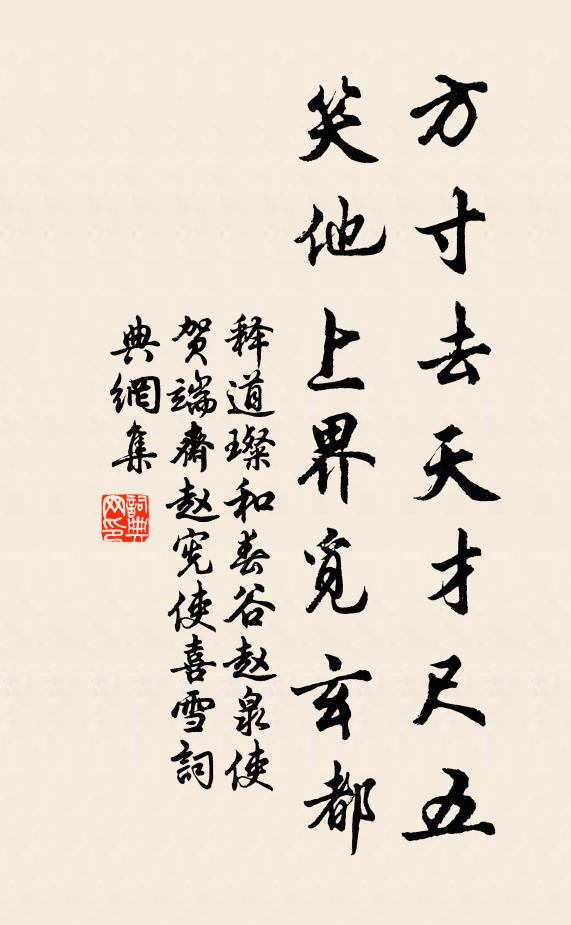 方寸去天才尺五
笑他上界覓玄都
释道璨和春谷赵泉使
贺端齋赵宪使喜雪詞
典網集
詞典网印